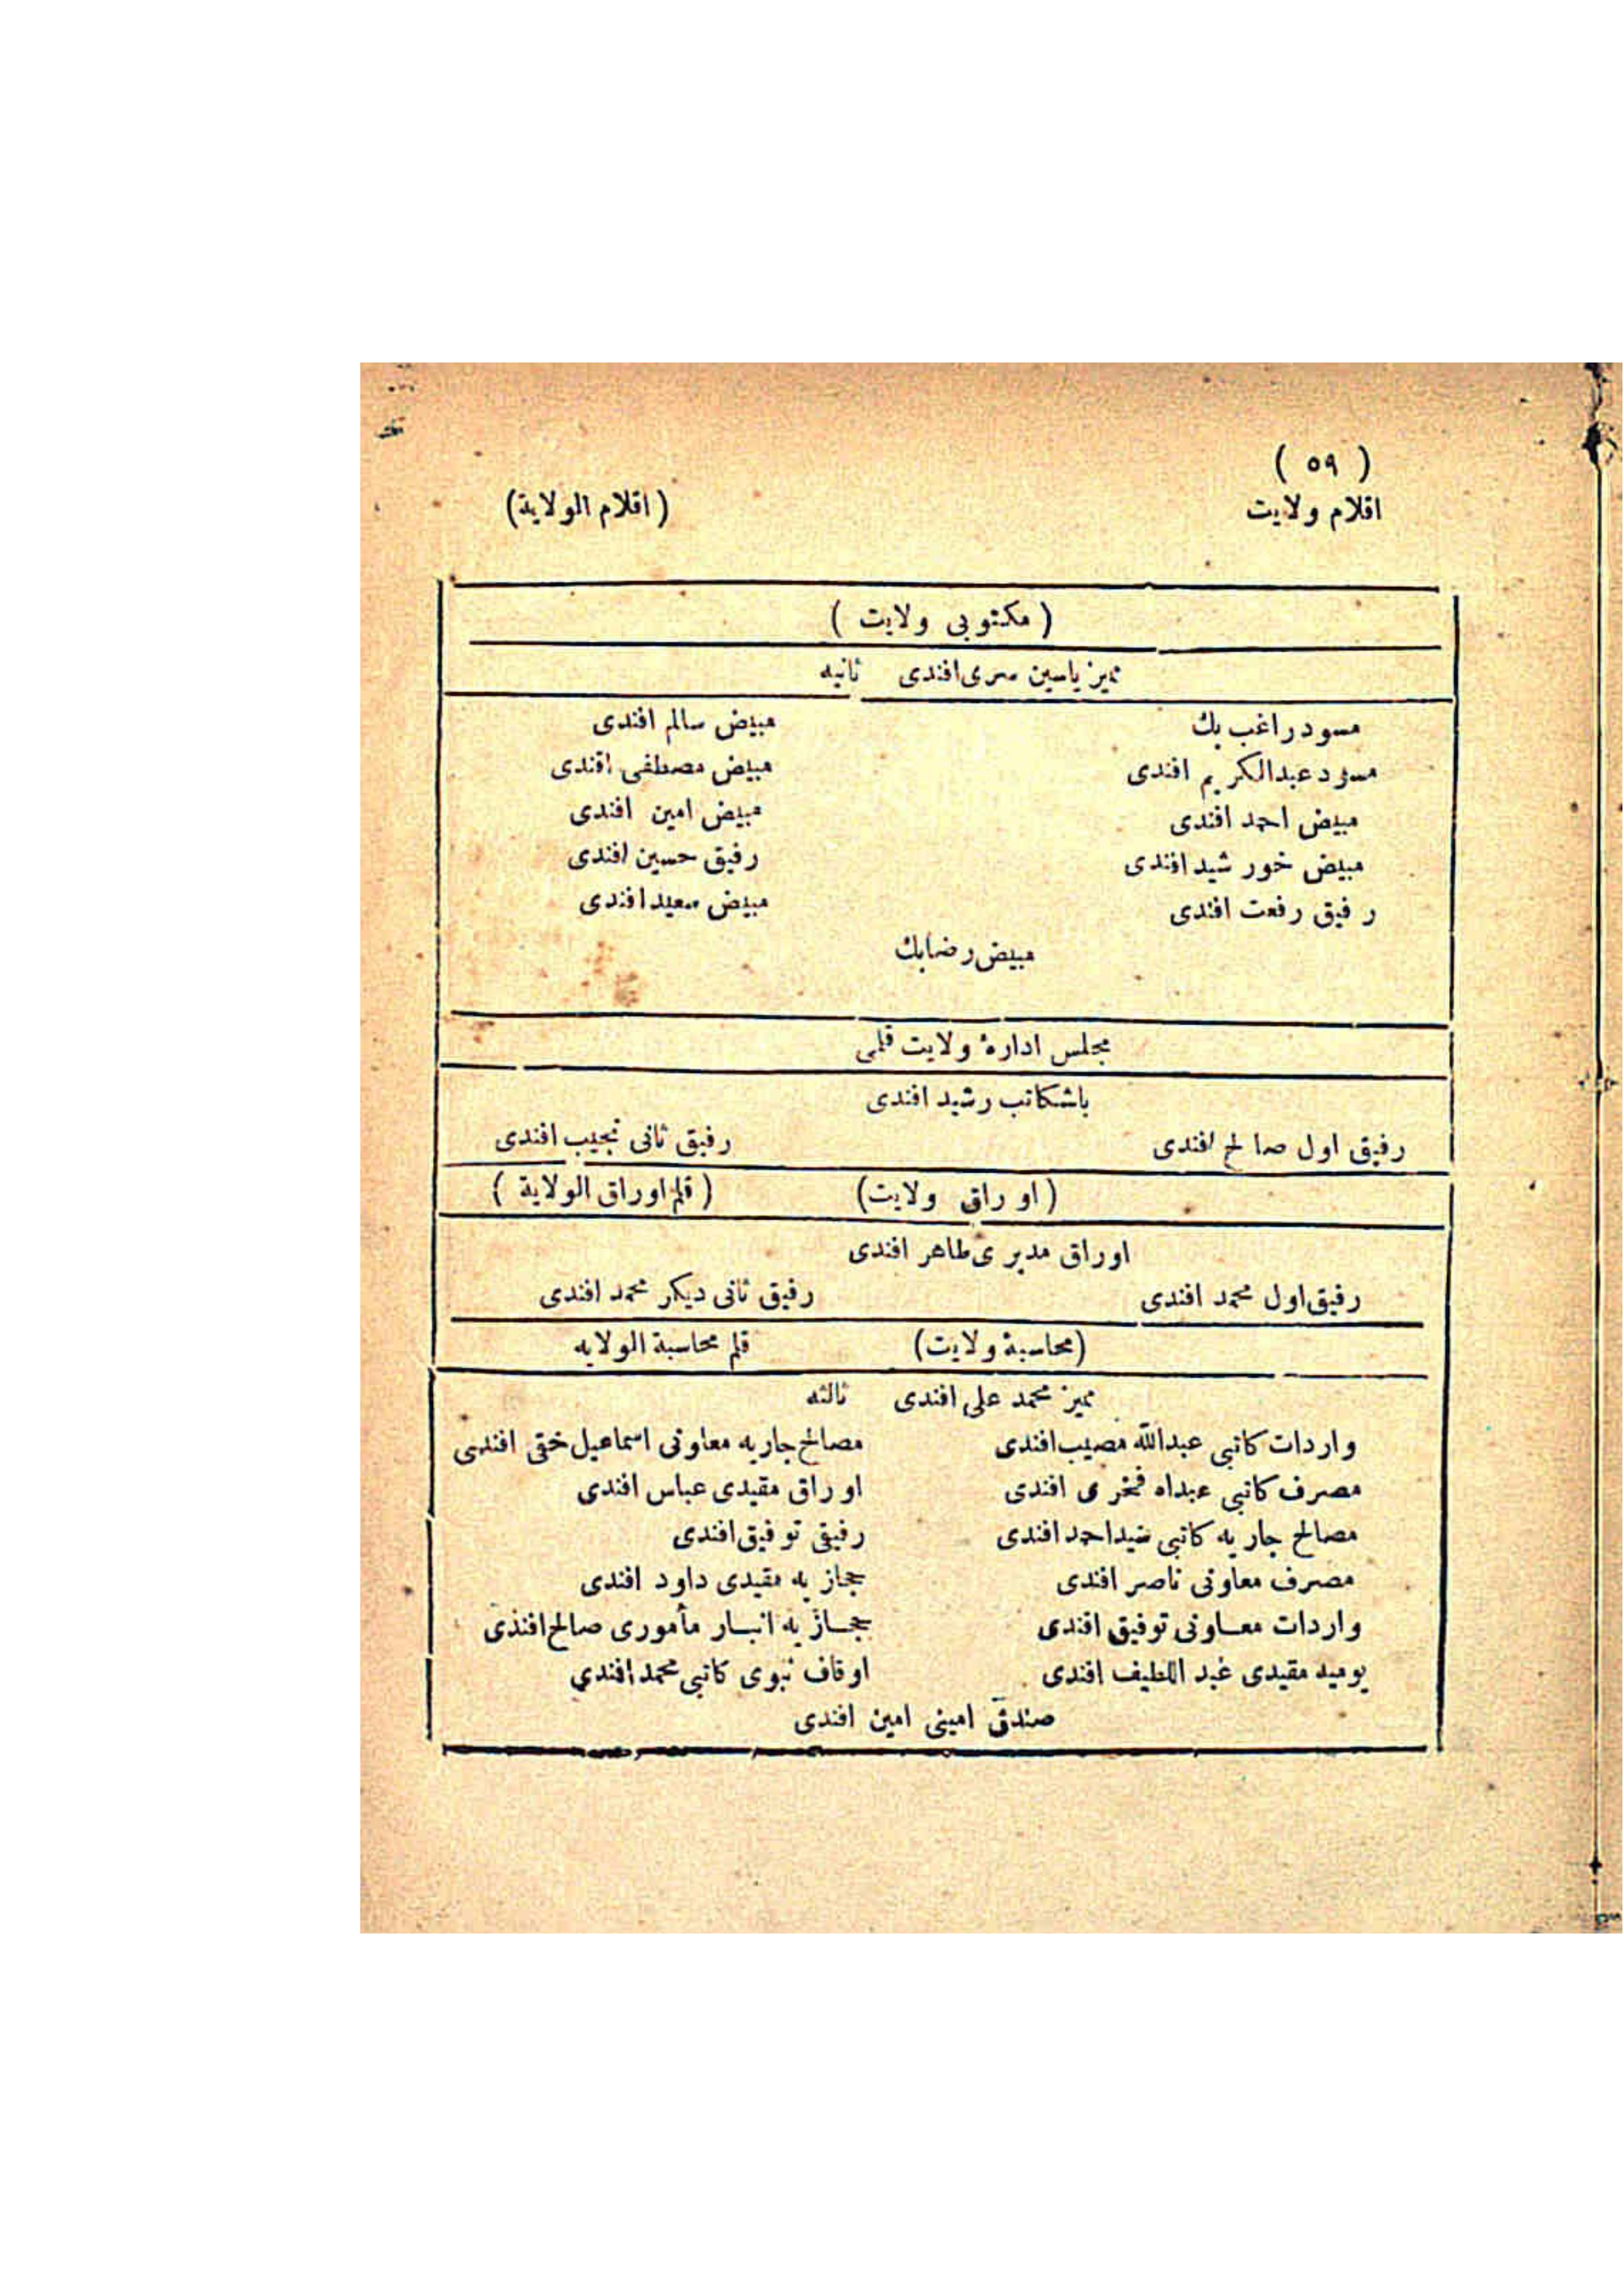 ( ٥٩ )
اقلام ولایت (اقلام الولایة)
( مكتوبی ولایت )
ممیز یاسین سری افندی ثانیه
مسود راغب بك مبیض سالم افندی
مسود عبدالكریم افندی مبیض مصطفی افندی
مبیض احمد افندی مبیض امین افندی
مبیض خورشید افندی رفیق حسین افندی
رفیق رفعت افندی مبیض سعید افندی
مبیض رضا بك
مجلس ادارهٔ ولایت قلمی
باشكاتب رشید افندی
رفیق اول صالح افندی رفیق ثانی نجیب افندی
(اوراق ولایت) ( قلم اوراق الولایة )
اوراق مدیری طاهر افندی
رفیق اول محمد افندی رفیق ثانی دیكر محمد افندی
(محاسبۀ ولایت) قلم محاسبة الولایه
ممیز محمد علی افندی ثالثه
واردات كاتبی عبدالله مصیب افندی مصالح جاریه معاونی اسماعیل حقی افندی
مصرف كاتبی فخری افندی اوراق مقیدی عباس افندی
مصالح جاریه كاتبی سید احمد افندی رفیقی توفیق افندی
مصرف معاونی ناصر افندی حجازیه مقیدی داود افندی
واردات معاونی توفیق افندی حجازیه انبار مأموری صالح افندی
یومیه مقیدی عبد اللطیف افندی اوقاف نبوی كاتبی محمد افندی
صندق امینی امین افندی